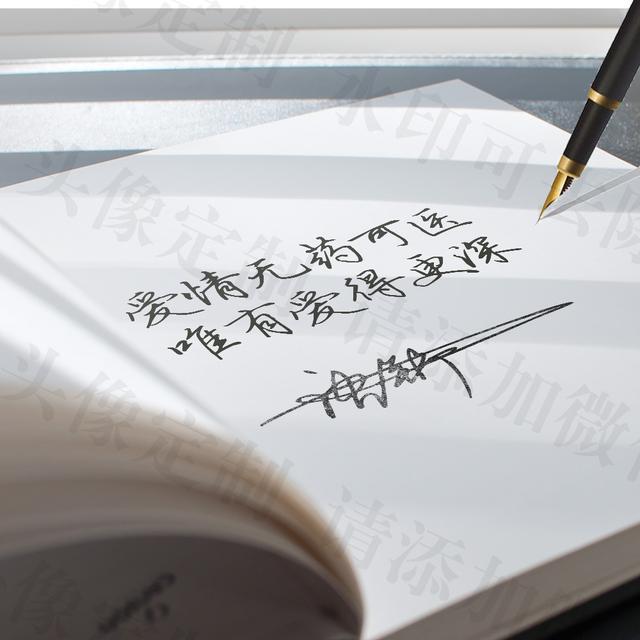 头像定制 水印可去除
爱情无药可医
唯有爱得更深
头像定制 请添加微
头像定制 请添加微